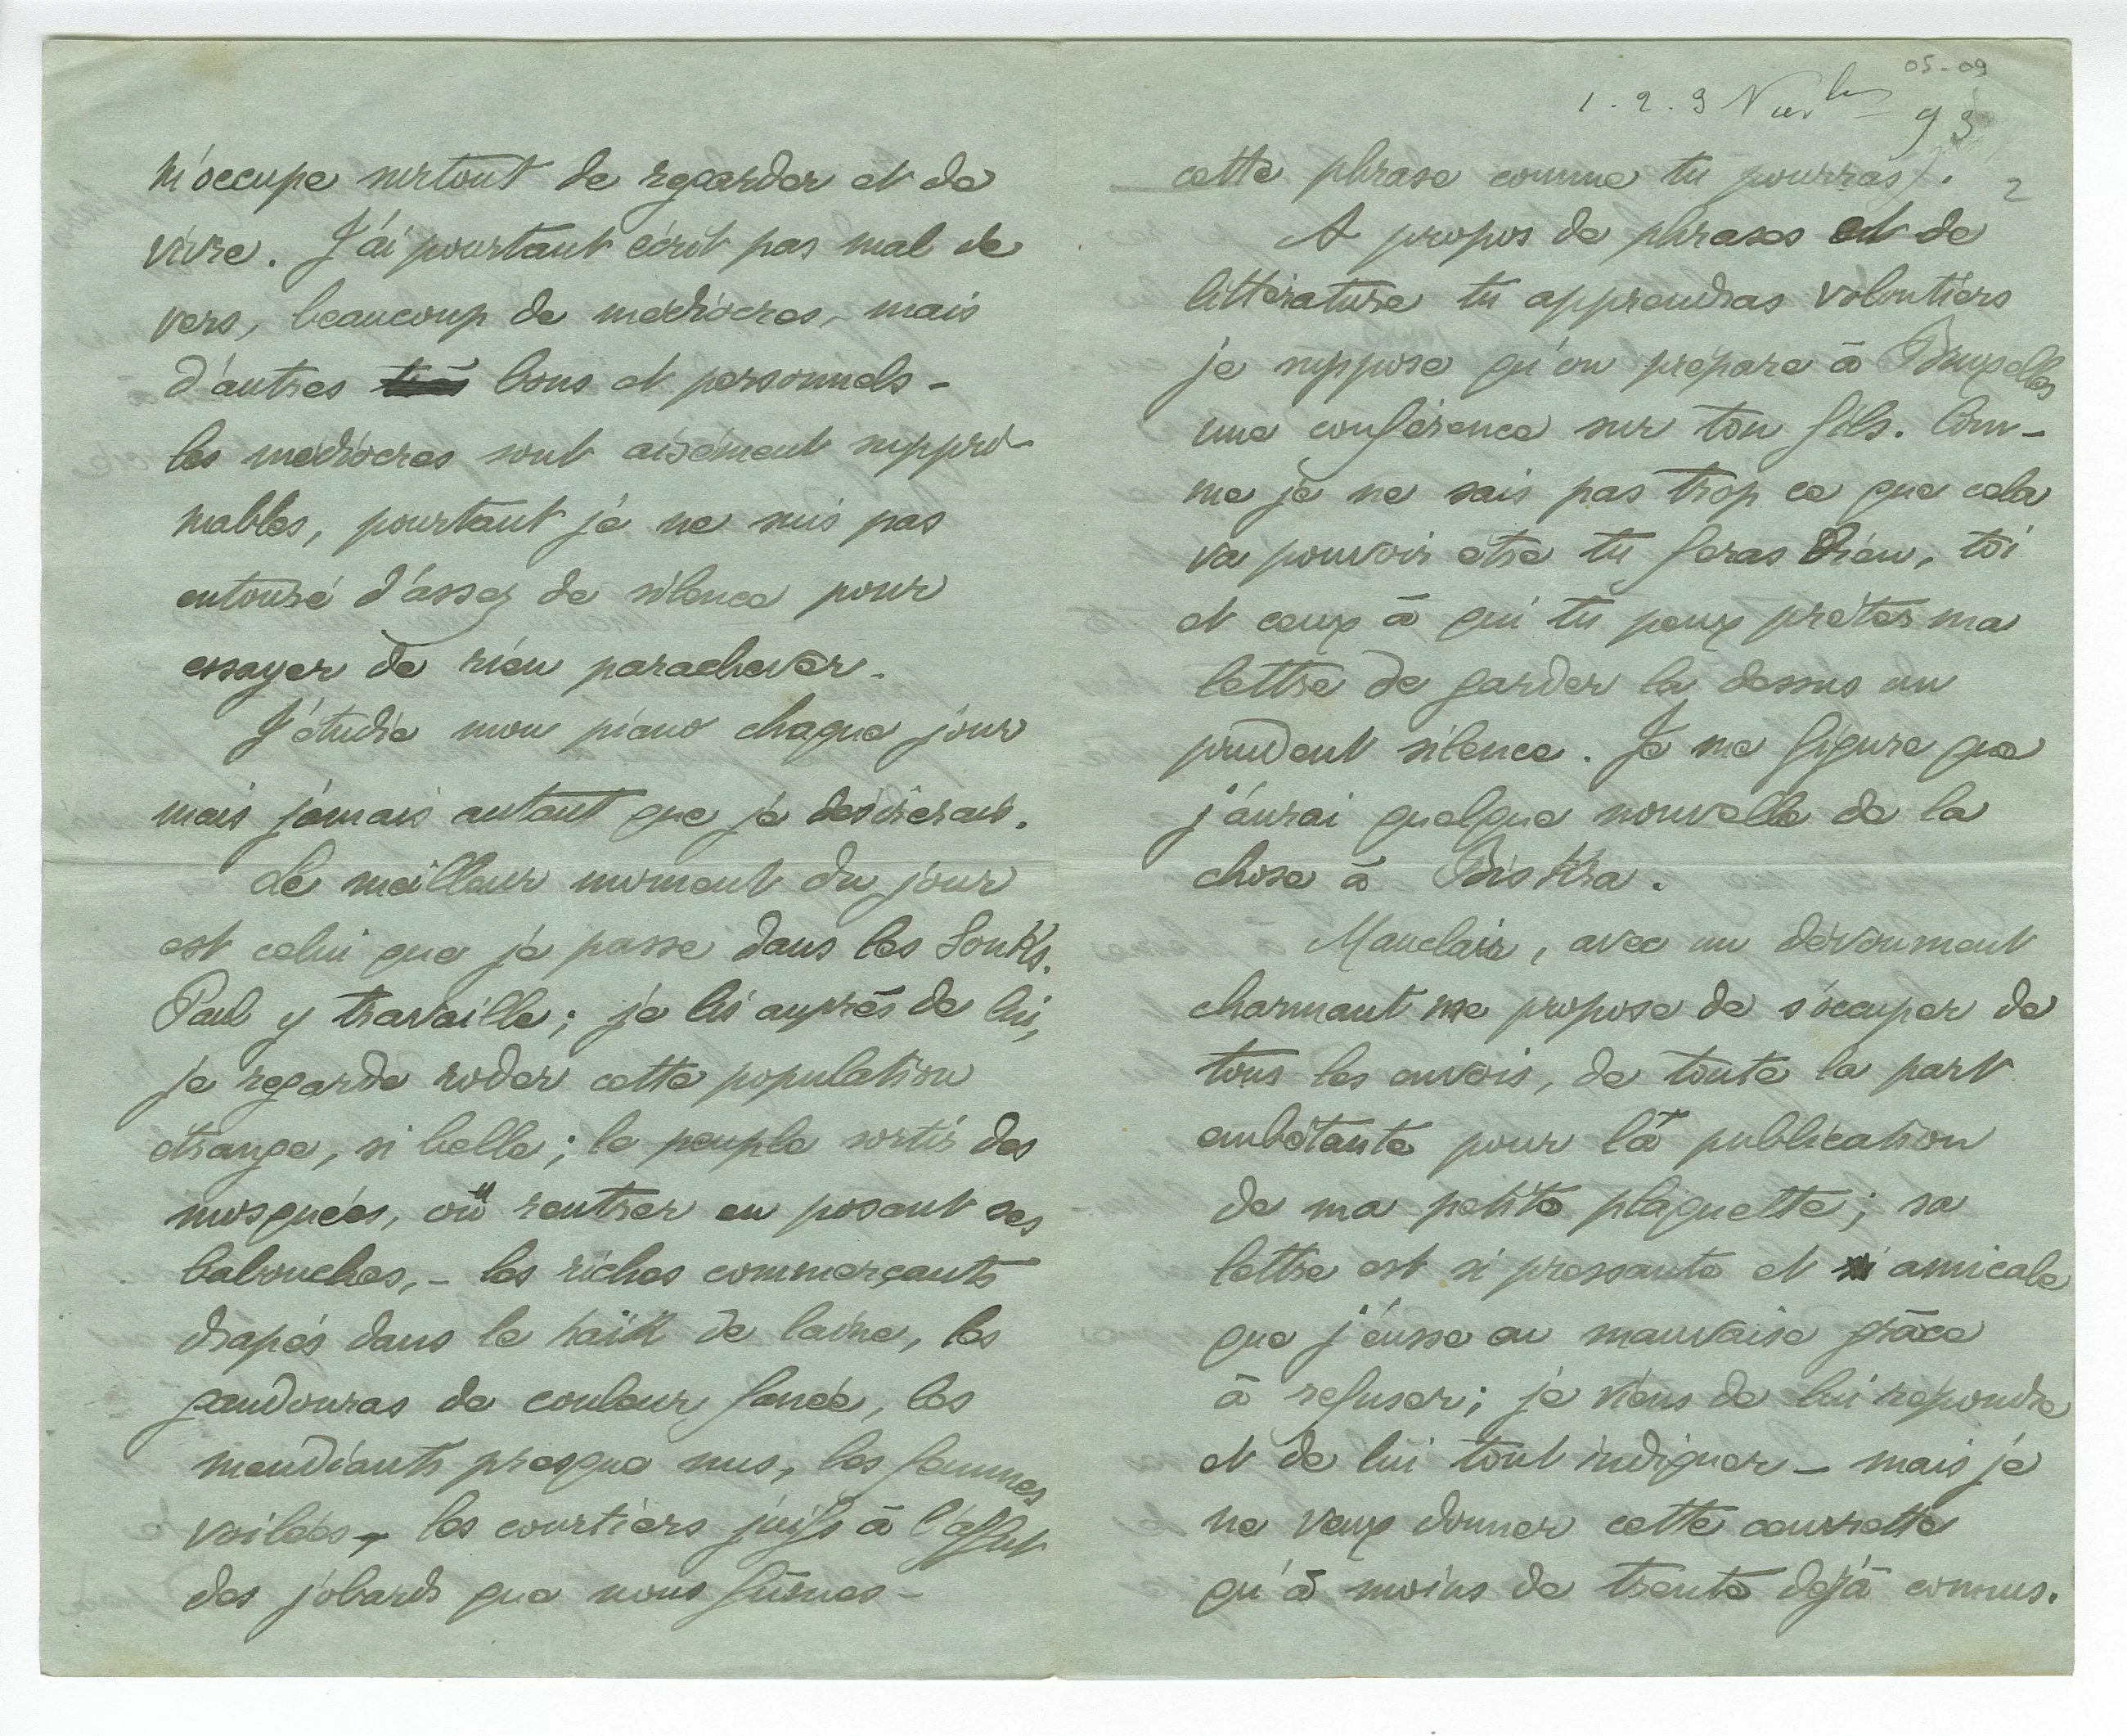 m'occupe surtout de regarder et de
vivre. J'ai pourtant écrit pas mal de
vers, beaucoup de médiocres, mais
d'autres très bons et personnels –
les médiocres sont aisément suppri-
mables, pourtant je ne suis pas
entouré d'assez de silence pour
essayer de rien parachever.
J'étudie mon piano chaque jour
mais jamais autant que je désirerais.
Le meilleur moment du jour
est celui que je passe dans les Souks.
Paul y travaille ; je lis auprès de lui,
je regarde roder cette population
étrange, si belle ; le peuple sortir des
mosquées, où rentrer en posant ses
babouches, – les riches commerçants
drapés dans le haïk de laine, les
gandouras de couleur fanée, les
mendiants presque nus, les femmes
voilées – les courtiers juifs à l'affut
des jobards que nous fûmes –
05-09
1. 2. 3 Novbre 93
2
cette phrase comme tu pourras).
A propos de phrases et de
littérature tu apprendras volontiers
je suppose qu'on prépare à Bruxelles
une conférence sur ton fils. Com-
me je ne sais pas trop ce que cela
va pouvoir être tu feras bien, toi
et ceux à qui tu peux prêter ma
lettre de garder la dessus un
prudent silence. Je me figure que
j'aurai quelque nouvelle de la
chose à Biskra.
Mauclair, avec un dévoument
charmant me propose de s'occuper de
tous les envois, de toute la part
embêtante pour la publication
de ma petite plaquette ; sa
lettre est si pressante et si amicale
que j'eusse eu mauvaise grâce
à refuser ; je viens de lui répondre
et de lui tout indiquer – mais je
ne veux donner cette œuvrette
qu'à moins de trente déjà connus.